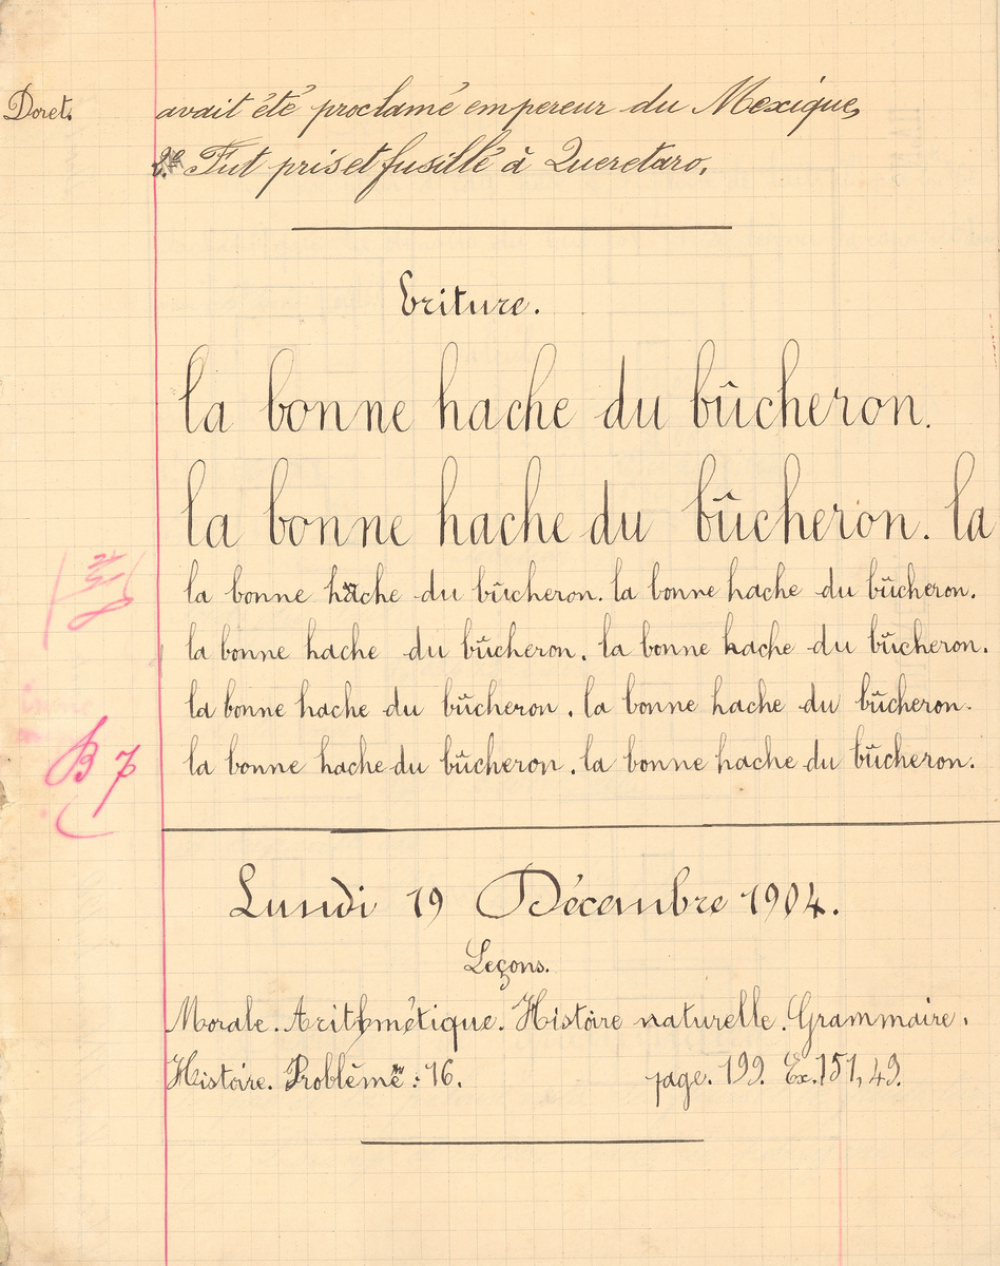 Doret.
avait été proclamé empereur du Mexique,
2.º Fut pris et fusillé à Queretaro.
Ecriture.
la bonne hache du bûcheron.
la bonne hache du bûcheron. la
la bonne hache du bûcheron. la bonne hache du bûcheron.
la bonne hache du bûcheron. la bonne hache du bûcheron.
la bonne hache du bûcheron. la bonne hache du bûcheron.
la bonne hache du bûcheron. la bonne hache du bûcheron.
B 7
Lundi 19 Décembre 1904.
Leçons.
Morale. Arithmétique. Histoire naturelle. Grammaire.
Histoire. Problème : 16. page. 199. Ex. 151, 49.